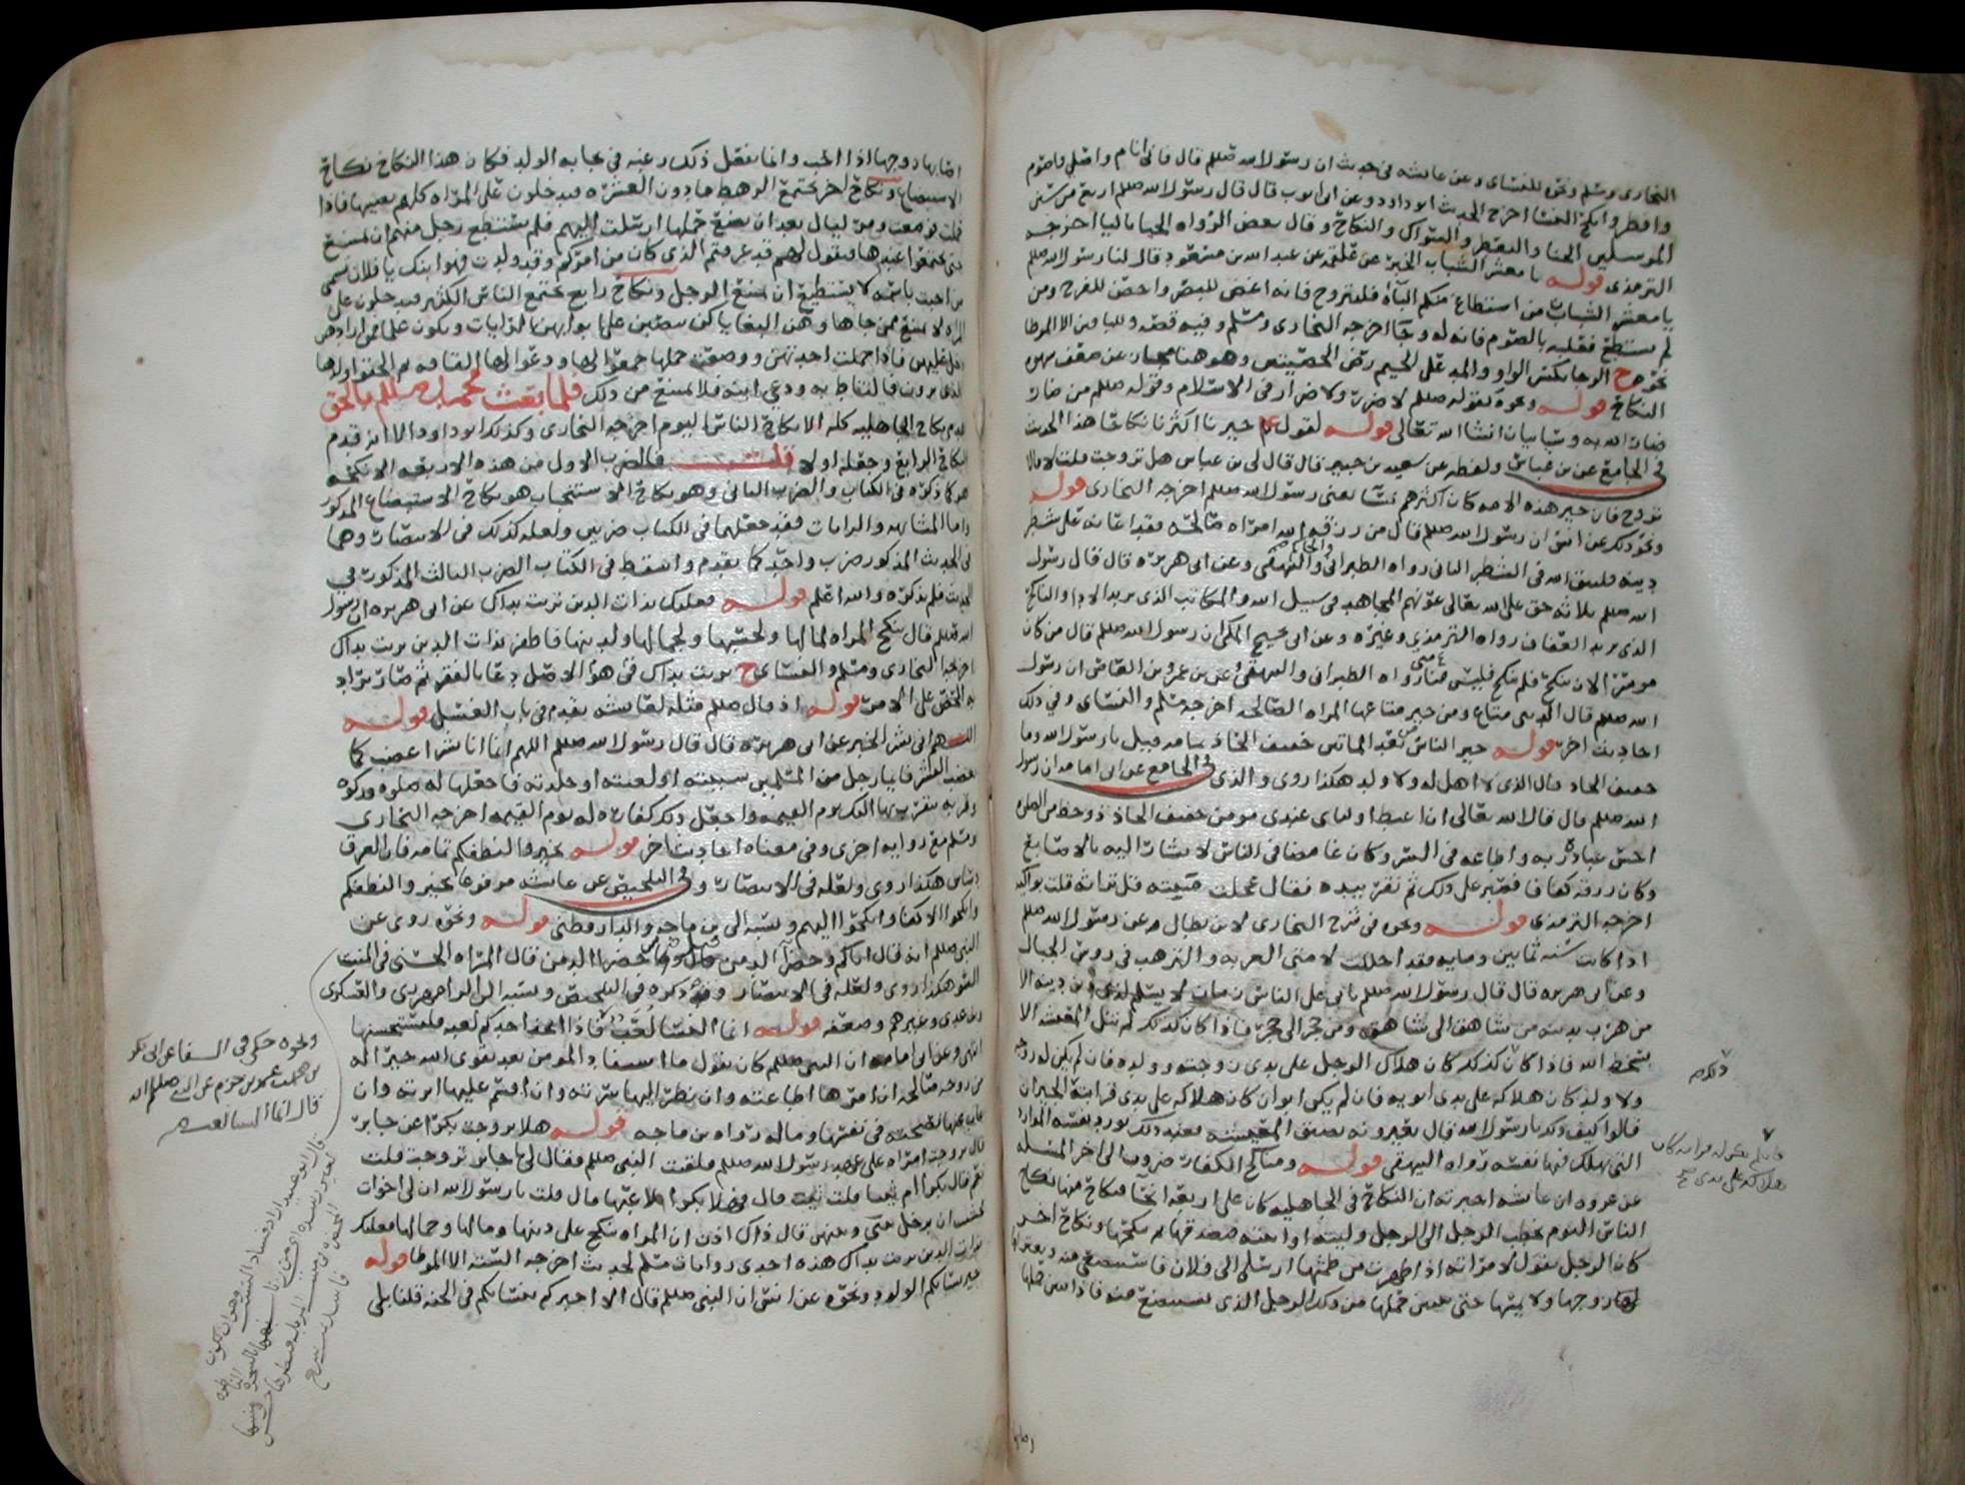 البخارى ومسلم ونحوه للنساى وعن عايشه فى حديث ان رسول الله صللم قال فانى انام واصلى واصوم
وافطر وانكح النسا اخرج الحديث ابو داود وعن ابى ايوب قال قال رسول الله صللم اربع من سنن
المرسلين الحنا والتعطر والسواك والنكاح وقال بعض الرواه الحيا باليا اخرجه
الترمذى قوله يا معشر الشباب الخبر عن علقمه عن عبد الله بن مسعود قال لنا رسول الله صللم
يا معشر الشباب من استطاع منكم الباه فليتزوج فانه اغض للبصر واحصن للفرج ومن
لم يستطع فعليه بالصوم فانه له وجا اخرجه البخارى ومسلم وفيه قصه وللباقين الا الموطا
نحوه ح الوجا بكسر الواو والمد على الجيم رض الخصيتين وهو هنا مجاز عن ضعف شهوه
النكاح قوله ونحوه لقوله صللم لا ضرر ولا ضرار فى الاسلام وقوله صللم من ضار
ضار الله به وسياتيان انشا الله تعالى قوله لقول ع خيرنا اكثرنا نكاحا هذا الحديث
فى الجامع عن بن عباس ولفظه عن سعيد بن جبير قال قال لى بن عباس هل تزوجت قلت لا قال
تزوج فان خير هذه الامه كان اكثرهم نسا يعنى رسول الله صللم اخرجه البخارى قوله
ونحو ذلك عن انس ان رسول الله صللم قال من رزقه الله امراه صالحه فقد اعانه على شطر
دينه فليتق الله فى الشطر الثانى رواه الطبرانى والبيهقى وعن ابى هريره قال قال رسول
الله صللم ثلاثه حق على الله تعالى عونهم المجاهد فى سبيل الله والمكاتب الذى يريد الادا والناكح
الذى يريد العفاف رواه الترمذى وغيره وعن ابى نجيح المكى ان رسول الله صللم قال من كان
موسرا لان ينكح فلم ينكح فليس منى رواه الطبرانى والبيهقى وعن بن عمرو بن العاص ان رسول
الله صللم قال الدنيا متاع ومن خير متاعها المراه الصالحه اخرجه مسلم والنساى وفى ذلك
احاديث اخر قوله خير الناس بعد الماتين خفيف الحاذ تمامه قيل يا رسول الله وما
خفيف الحاذ قال الذى لا اهل له ولا ولد هكذا روى والذى فى الجامع عن ابى امامه ان رسول
الله صللم قال قال الله تعالى ان اغبط اوليائى عندى مومن خفيف الحاذ ذو حظ من الصلاه
احسن عباده ربه واطاعه فى السر وكان غامضا فى الناس لا يشار اليه بالاصابع
وكان رزقه كفافا فصبر على ذلك ثم نقر بيده فقال عجلت منيته قل تراثه قلت بواكيه
اخرجه الترمذى قوله ونحوه فى شرح البخارى لابن بطال عن رسول الله صللم
اذا كانت سنه ثمانين ومايه فقد احللت لامتى العزبه والترهب فى روس الجبال
وعن ابى هريره قال قال رسول الله صللم ياتى على الناس زمان لا يسلم لذى دين دينه الا
من هرب بدينه من شاهق الى شاهق ومن جحر الى جحر فاذا كان كذلك لم تنل المعيشه الا
بسخط الله فاذا كان كذلك كان هلاك الرجل على يدى زوجته وولده فان لم يكن له زوجه
ولا ولد كان هلاكه على يدى ابويه فان لم يكن ابوان كان هلاكه على يدى قرابته او الجيران
قالوا كيف ذلك يا رسول الله قال يعيرونه بضيق المعيشه فعند ذلك يورد نفسه الموارد
التى يهلك فيها نفسه رواه البيهقى قوله ومناكح الكفار ضروب الى اخر المسله
عن عروه ان عايشه اخبرته ان النكاح فى الجاهليه كان على اربعه انحا فنكاح منها نكاح
الناس اليوم يخطب الرجل الى الرجل وليته او ابنته فيصدقها ثم ينكحها ونكاح اخر
كان الرجل يقول لامراته اذا طهرت من طمثها ارسلى الى فلان فاستبضعى منه ويعتزلها
زوجها ولا يمسها حتى يتبين حملها من ذلك الرجل الذى تستبضع منه فاذا تبين حملها
اصابها زوجها اذا احب وانما يفعل ذلك رغبه فى نجابه الولد فكان هذا النكاح نكاح
الاستبضاع ونكاح اخر يجتمع الرهط ما دون العشره فيدخلون على المراه كلهم يصيبها فاذا
حملت ووضعت ومر ليال بعد ان تضع حملها ارسلت اليهم فلم يستطع رجل منهم ان يمتنع
حتى يجتمعوا عندها فتقول لهم قد عرفتم الذى كان من امركم وقد ولدت فهو ابنك يا فلان تسمى
من احبت باسمه لا يستطيع ان يمتنع الرجل ونكاح رابع يجتمع الناس الكثير فيدخلون على
المراه لا تمتنع ممن جاها وهن البغايا كن ينصبن على ابوابهن الرايات وتكون علما فمن ارادهن
دخل عليهن فاذا حملت احداهن ووضعت حملها جمعوا لها ودعوا لها القافه ثم الحقوا ولدها
بالذى يرون فالتاط به ودعى ابنه فلا يمتنع من ذلك فلما بعث محمد صللم بالحق
هدم نكاح الجاهليه كله الا نكاح الناس اليوم اخرجه البخارى وكذلك ابو داود الا انه قدم
النكاح الرابع وجعله اولا قلت فالضرب الاول من هذه الاربعه الانكحه
هو كما ذكره فى الكتاب والضرب الثانى وهو نكاح الاستنجاب هو نكاح الاستبضاع المذكور
واما المشابهه والرايات فقد جعلهما فى الكتاب ضربين ولعله كذلك فى الانتصار وهما
فى الحديث المذكور ضرب واحد كما تقدم واسقط فى الكتاب الضرب الثالث المذكور فى
الحديث فلم يذكره والله اعلم قوله فعليك بذات الدين تربت يداك عن ابى هريره ان رسول
الله صللم قال تنكح المراه لمالها ولحسبها ولجمالها ولدينها فاظفر بذات الدين تربت يداك
اخرجه البخارى ومسلم والنساى ح تربت يداك فى هو الاصل دعا بالفقر ثم صار يراد
به الحض على الامر قوله اذ قال صللم مثله لعايشه تقدم فى باب الغسل قوله
اللهم انى بشر الخبر عن ابى هريره قال قال رسول الله صللم اللهم انما انا بشر اغضب كما
يغضب البشر فايما رجل من المسلمين سببته او لعنته او جلدته فاجعلها له صلوه وزكوه
وقربه تقربه بها اليك يوم القيمه واجعل ذلك كفاره له يوم القيمه اخرجه البخارى
ومسلم مع روايه اخرى وفى معناه احاديث اخر قوله تخيروا لنطفكم تمامه فان العرق
دساس هكذا روى ولعله فى الانتصار وفى التلخيص عن عايشه مرفوعا تخيروا لنطفكم
وانكحوا الاكفا وانكحوا اليهم ونسبه الى بن ماجه والدارقطنى قوله ونحوه روى عن
النبى صللم انه قال اياكم وخضرا الدمن قيل وما خضرا الدمن قال المراه الحسنى فى المنبت
السو هكذا روى ولعله فى الانتصار وقد ذكره فى التلخيص ونسبه الى الرامهرمزى والعسكرى
وابن عدى وغيرهم وضعفه قوله انما النسا لعب فاذا اتخذ احدكم لعبه فليستحسنها
انتهى وعن ابى امامه ان النبى صللم كان يقول ما استفاد المومن بعد تقوى الله خيرا له
من زوجه صالحه ان امرها اطاعته وان نظر اليها سرته وان اقسم عليها ابرته وان
غاب عنها نصحته فى نفسها وماله رواه بن ماجه قوله هلا تزوجت بكرا عن جابر
قال تزوجت امراه على عهد رسول الله صللم فلقيت النبى صللم فقال لى يا جابر تزوجت قلت
نعم قال بكرا ام ثيبا قلت ثيب قال فهلا بكرا تلاعبها قال قلت يا رسول الله ان لى اخوات
فخشيت ان تدخل بينى وبينهن قال ذاك اذن ان المراه تنكح على دينها ومالها وجمالها فعليك
بذات الدين تربت يداك هذه احدى روايات مسلم لحديث اخرجه السته الا الموطا قوله
خير نسائكم الولود ونحوه عن انس ان النبى صللم قال الا اخبركم بنسائكم فى الجنه قلنا بلى